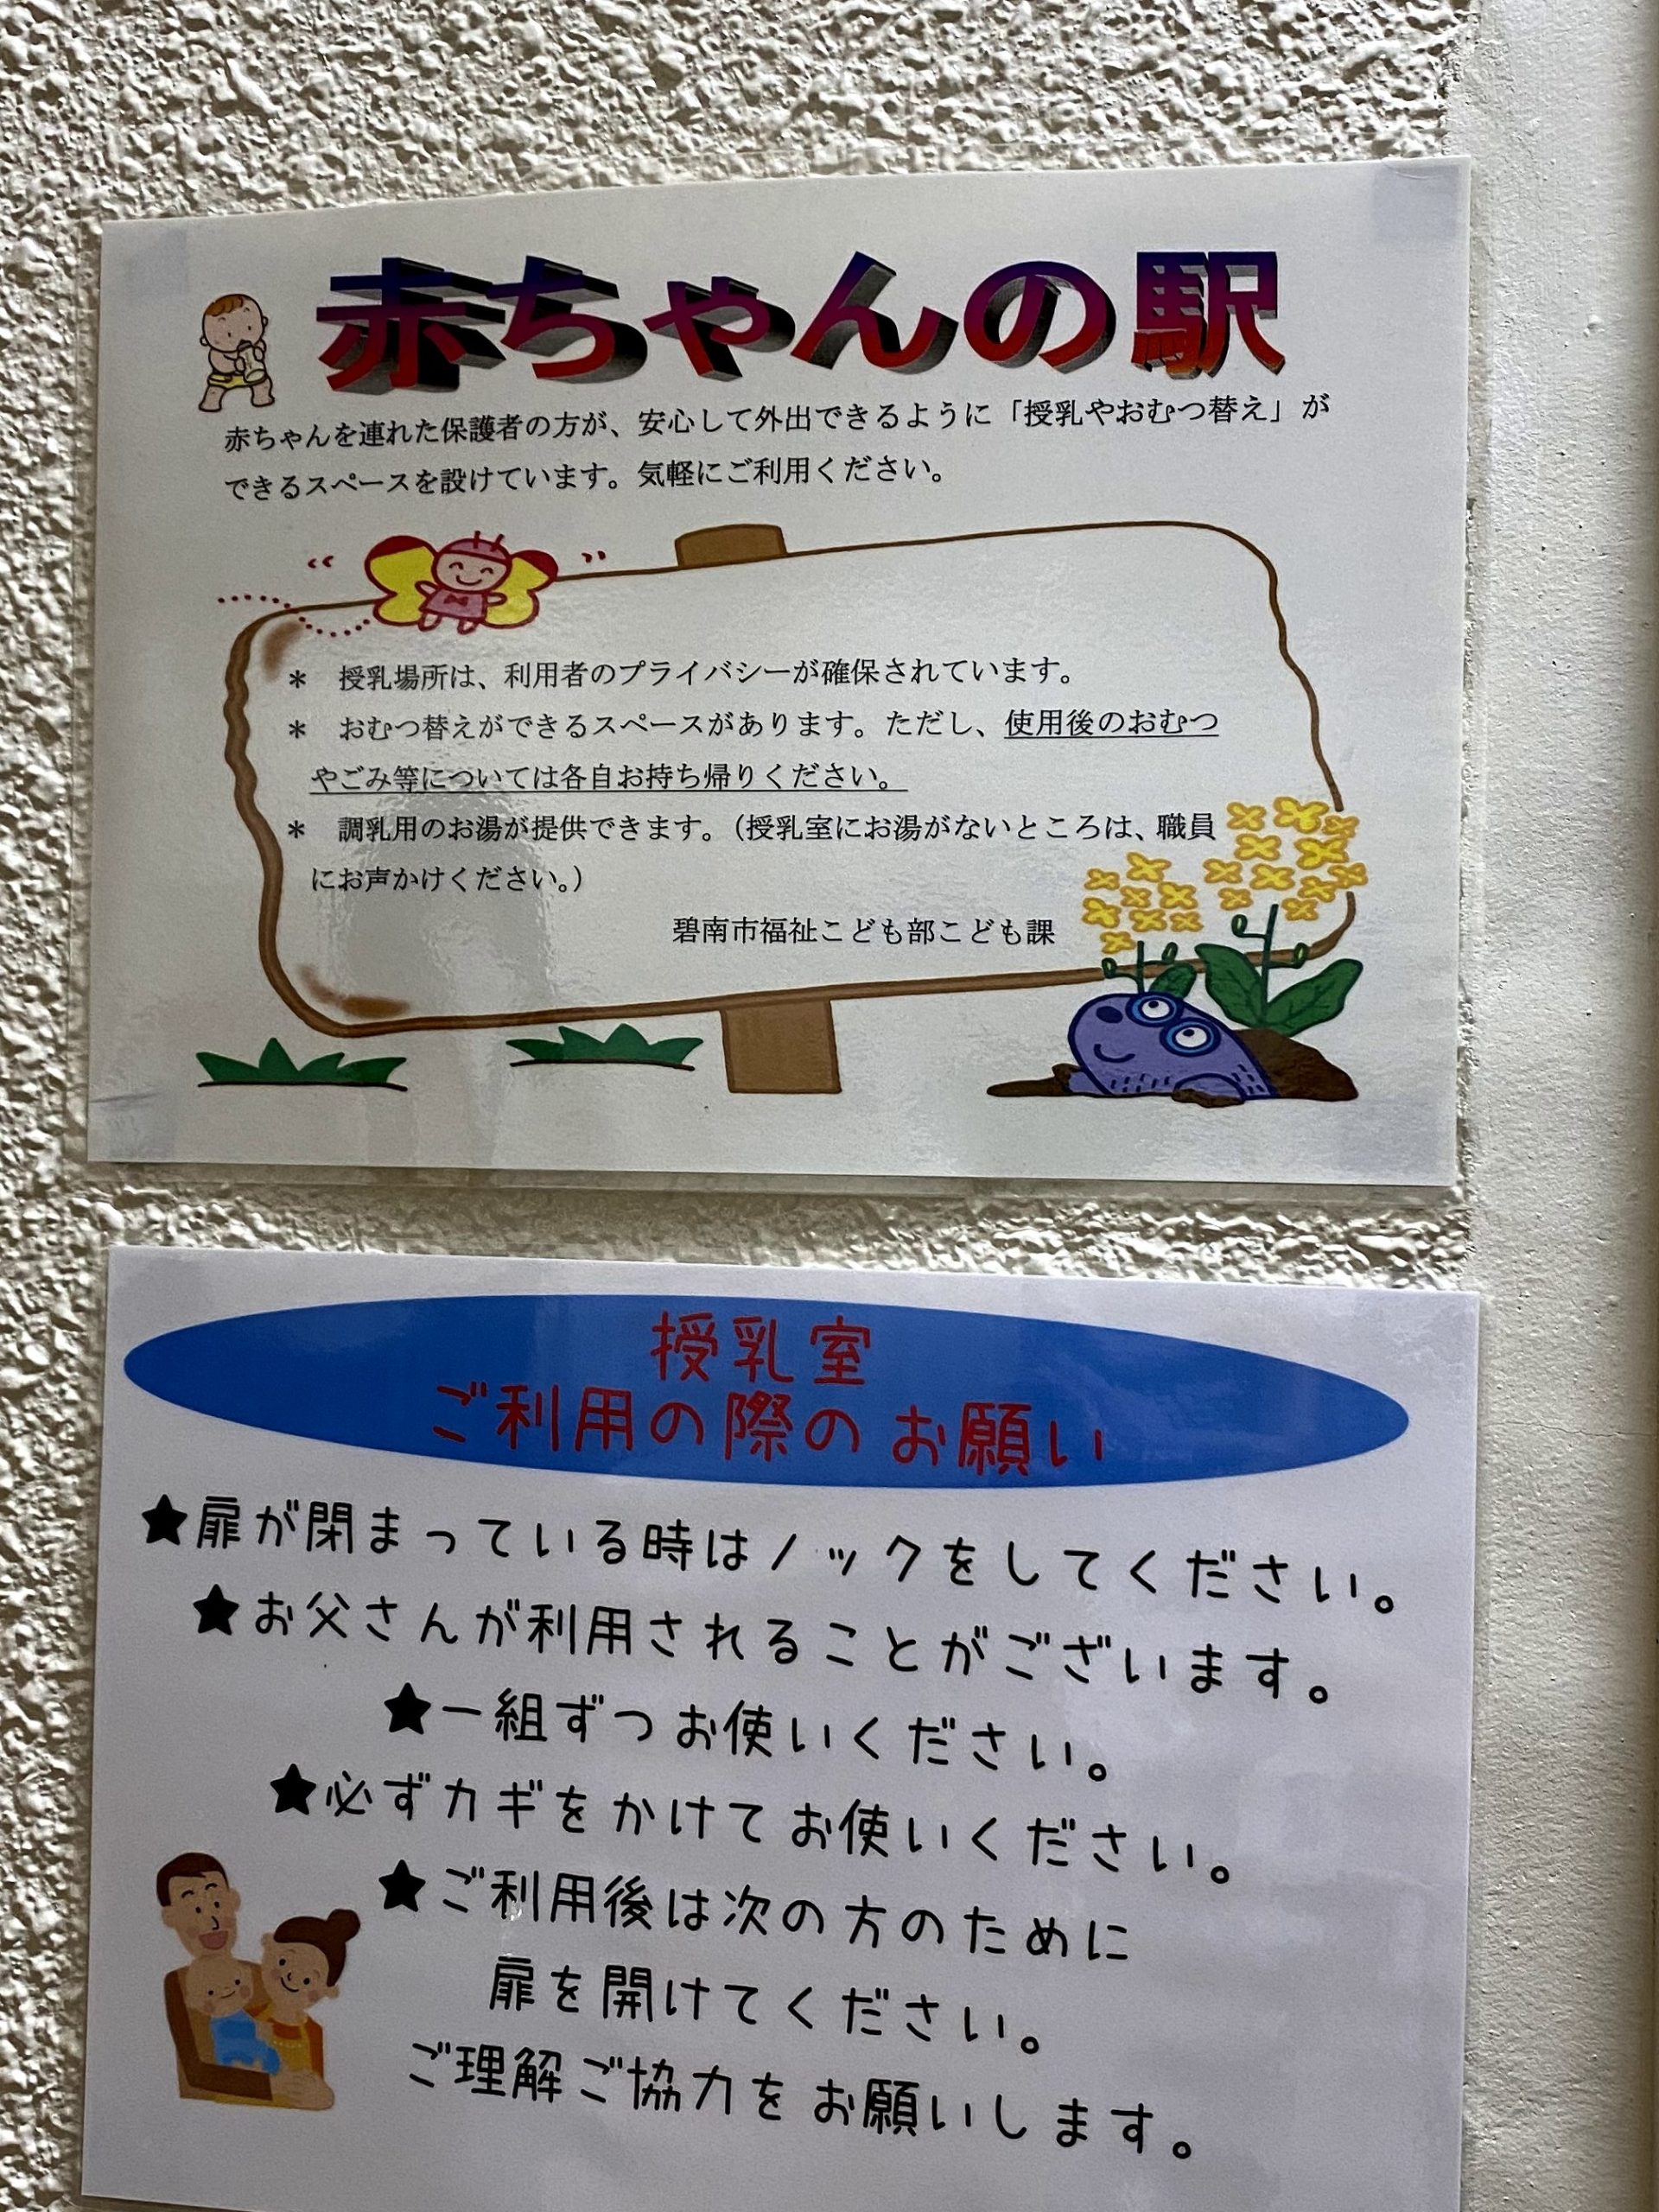 赤ちゃんの駅
赤ちゃんを連れた保護者の方が、安心して外出できるように「授乳やおむつ替え」が
できるスペースを設けています。気軽にご利用ください。
＊　授乳場所は、利用者のプライバシーが確保されています。
＊　おむつ替えができるスペースがあります。ただし、使用後のおむつ
やごみ等については各自お持ち帰りください。
＊　調乳用のお湯が提供できます。（授乳室にお湯がないところは、職員
にお声かけください。）
碧南市福祉こども部こども課
授乳室
ご利用の際のお願い
★扉が閉まっている時はノックをしてください。
★お父さんが利用されることがございます。
★一組ずつお使いください。
★必ずカギをかけてお使いください。
★ご利用後は次の方のために
扉を開けてください。
ご理解ご協力をお願いします。